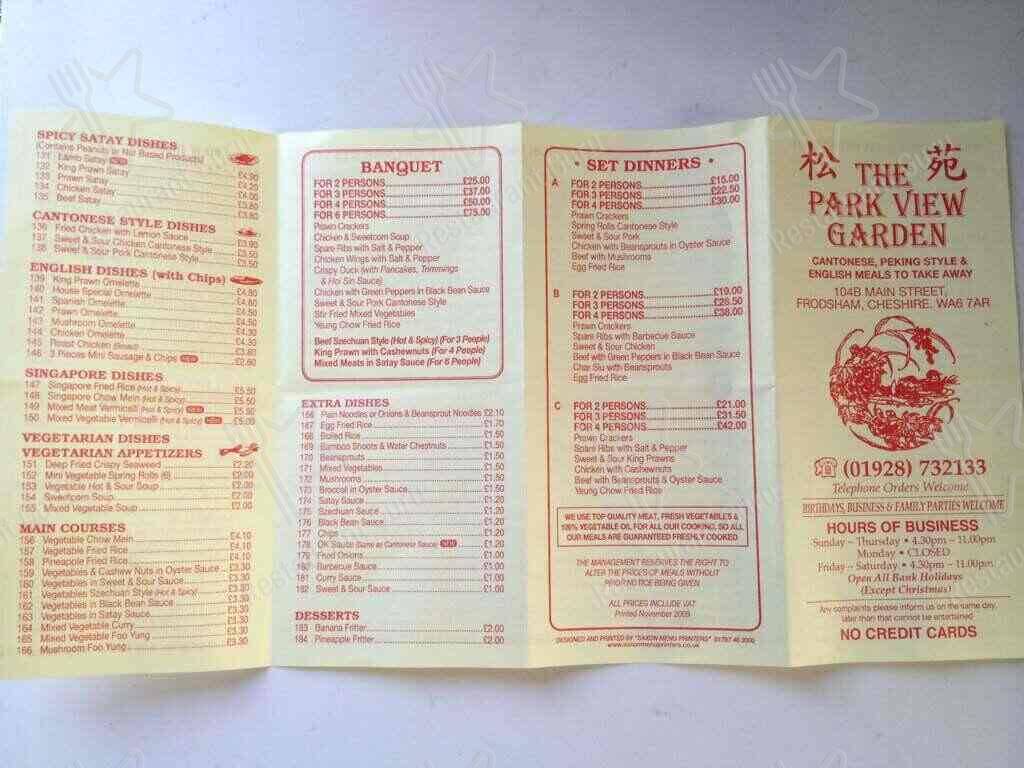 SPICY SATAY DISHES
(Contains Peanuts or Nut Based Products)
131 Lamb Satay NEW £4.90
132 King Prawn Satay £4.20
133 Prawn Satay £4.00
134 Chicken Satay £3.80
135 Beef Satay £3.80
CANTONESE STYLE DISHES
136 Fried Chicken with Lemon Sauce £3.90
137 Sweet & Sour Chicken Cantonese Style £3.50
138 Sweet & Sour Pork Cantonese Style £3.50
ENGLISH DISHES (with Chips)
139 King Prawn Omelette £4.90
140 House Special Omelette £4.80
141 Spanish Omelette £4.50
142 Prawn Omelette £4.50
143 Mushroom Omelette £4.30
144 Chicken Omelette £4.30
145 Roast Chicken £3.80
146 3 Pieces Mini Sausage & Chips NEW £2.60
SINGAPORE DISHES
147 Singapore Fried Rice (Hot & Spicy) £5.50
148 Singapore Chow Mein (Hot & Spicy) £5.50
149 Mixed Meat Vermicelli (Hot & Spicy) NEW £5.50
150 Mixed Vegetable Vermicelli (Hot & Spicy) NEW £5.00
VEGETARIAN DISHES
VEGETARIAN APPETIZERS
151 Deep Fried Crispy Seaweed £2.20
152 Mini Vegetable Spring Rolls (6) £2.00
153 Vegetable Hot & Sour Soup £2.00
154 Sweetcorn Soup £2.00
155 Mixed Vegetable Soup £2.00
MAIN COURSES
156 Vegetable Chow Mein £4.10
157 Vegetable Fried Rice £4.10
158 Pineapple Fried Rice £4.10
159 Vegetables & Cashew Nuts in Oyster Sauce £3.30
160 Vegetables in Sweet & Sour Sauce £3.30
161 Vegetables Szechuan Style (Hot & Spicy) £3.30
162 Vegetables in Black Bean Sauce £3.30
163 Vegetables in Satay Sauce £3.30
164 Mixed Vegetable Curry £3.30
165 Mixed Vegetable Foo Yung £3.30
166 Mushroom Foo Yung £3.30
BANQUET
FOR 2 PERSONS £25.00
FOR 3 PERSONS £37.00
FOR 4 PERSONS £50.00
FOR 6 PERSONS £75.00
Prawn Crackers
Chicken & Sweetcorn Soup
Spare Ribs with Salt & Pepper
Chicken Wings with Salt & Pepper
Crispy Duck (with Pancakes, Trimmings
& Hoi Sin Sauce)
Chicken with Green Peppers in Black Bean Sauce
Sweet & Sour Pork Cantonese Style
Stir Fried Mixed Vegetables
Yeung Chow Fried Rice
Beef Szechuan Style (Hot & Spicy) (For 3 People)
King Prawn with Cashewnuts (For 4 People)
Mixed Meats in Satay Sauce (For 6 People)
EXTRA DISHES
166 Plain Noodles or Onions & Beansprout Noodles £2.10
167 Egg Fried Rice £1.70
168 Boiled Rice £1.50
169 Bamboo Shoots & Water Chestnuts £1.50
170 Beansprouts £1.50
171 Mixed Vegetables £1.50
172 Mushrooms £1.50
173 Broccoli in Oyster Sauce £1.50
174 Satay Sauce £1.20
175 Szechuan Sauce £1.20
176 Black Bean Sauce £1.20
177 Chips £1.20
178 OK Sauce (Same as Cantonese Sauce) NEW £1.20
179 Fried Onions £1.00
180 Barbecue Sauce £1.00
181 Curry Sauce £1.00
182 Sweet & Sour Sauce £1.00
DESSERTS
183 Banana Fritter £2.00
184 Pineapple Fritter £2.00
• SET DINNERS •
A FOR 2 PERSONS £15.00
FOR 3 PERSONS £22.50
FOR 4 PERSONS £30.00
Prawn Crackers
Spring Rolls Cantonese Style
Sweet & Sour Pork
Chicken with Beansprouts in Oyster Sauce
Beef with Mushrooms
Egg Fried Rice
B FOR 2 PERSONS £19.00
FOR 3 PERSONS £28.50
FOR 4 PERSONS £38.00
Prawn Crackers
Spare Ribs with Barbecue Sauce
Sweet & Sour Chicken
Beef with Green Peppers in Black Bean Sauce
Char Siu with Beansprouts
Egg Fried Rice
C FOR 2 PERSONS £21.00
FOR 3 PERSONS £31.50
FOR 4 PERSONS £42.00
Prawn Crackers
Spare Ribs with Salt & Pepper
Sweet & Sour King Prawns
Chicken with Cashewnuts
Beef with Beansprouts & Oyster Sauce
Yeung Chow Fried Rice
WE USE TOP QUALITY MEAT, FRESH VEGETABLES &
100% VEGETABLE OIL FOR ALL OUR COOKING, SO ALL
OUR MEALS ARE GUARANTEED FRESHLY COOKED
THE MANAGEMENT RESERVES THE RIGHT TO
ALTER THE PRICES OF MEALS WITHOUT
PRIOR NOTICE BEING GIVEN
ALL PRICES INCLUDE VAT
Printed November 2009
DESIGNED AND PRINTED BY "SAXON MENU PRINTERS"
www.saxonmenuprinters.co.uk
松 THE 苑
PARK VIEW
GARDEN
CANTONESE, PEKING STYLE &
ENGLISH MEALS TO TAKE AWAY
104B MAIN STREET,
FRODSHAM, CHESHIRE. WA6 7AR
(01928) 732133
Telephone Orders Welcome
BIRTHDAYS, BUSINESS & FAMILY PARTIES WELCOME
HOURS OF BUSINESS
Sunday – Thursday • 4.30pm – 11.00pm
Monday • CLOSED
Friday – Saturday • 4.30pm – 11.00pm
Open All Bank Holidays
(Except Christmas)
Any complaints please inform us on the same day,
later than that cannot be entertained
NO CREDIT CARDS